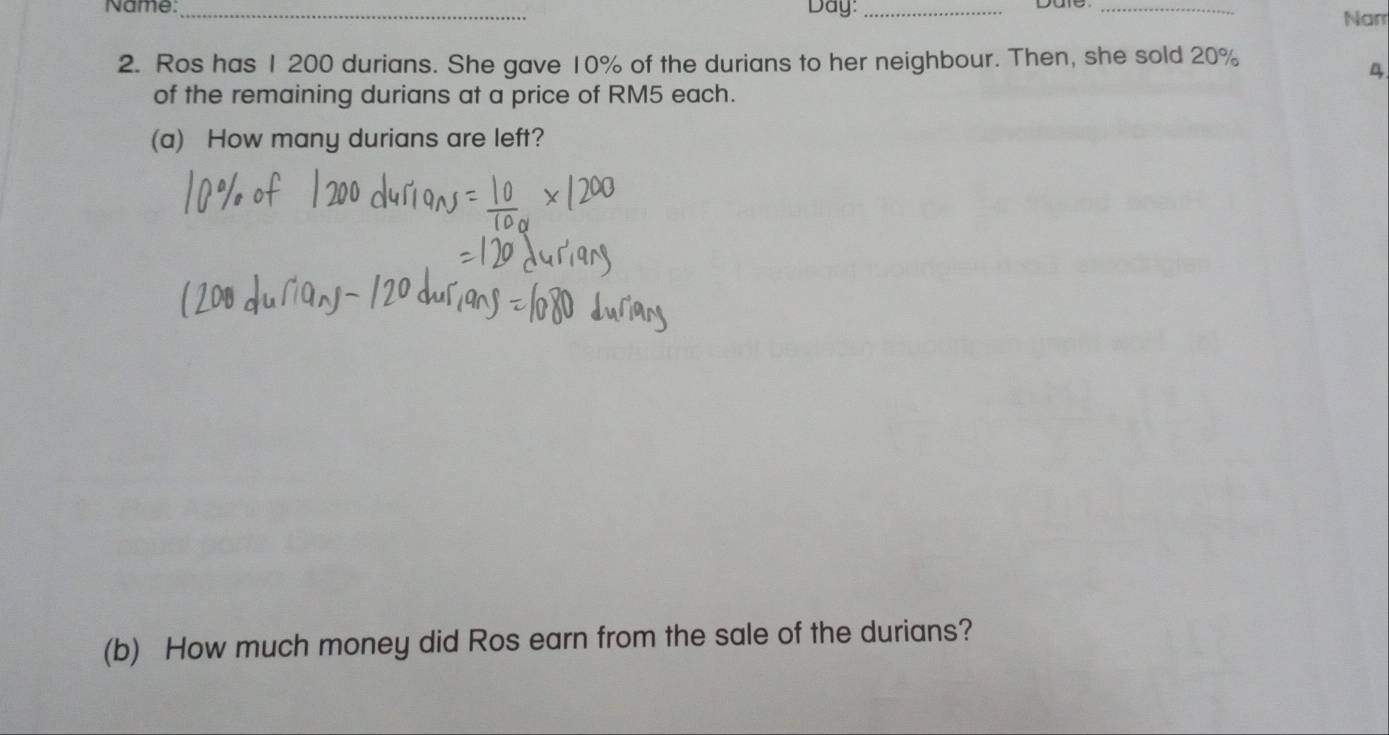 Name:
Day:
Nam
2. Ros has 1 200 durians. She gave 10% of the durians to her neighbour. Then, she sold 20%
4.
of the remaining durians at a price of RM5 each.
(a) How many durians are left?
10% of 1200 durians = 10/100 × 1200
= 120 durians
1200 durians - 120 durians = 1080 durians
(b) How much money did Ros earn from the sale of the durians?